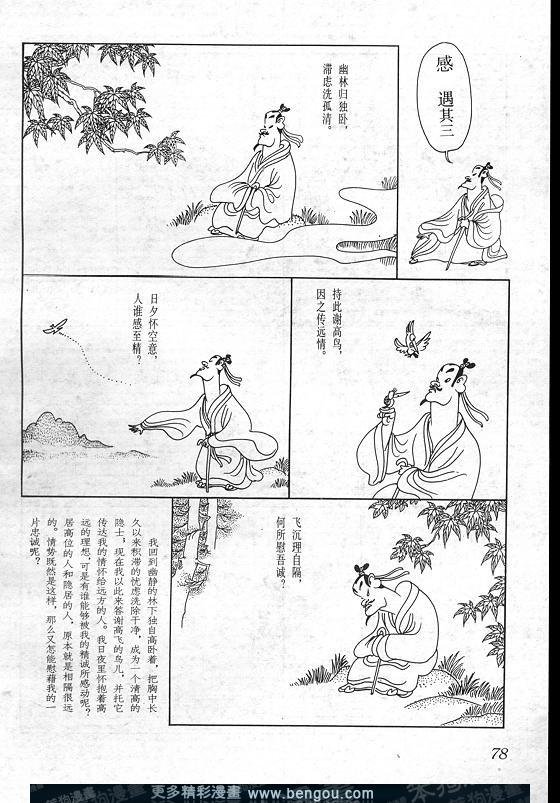 感遇其三
幽林归独卧，
滞虑洗孤清。
持此谢高鸟，
因之传远情。
日夕怀空意，
人谁感至精？
飞沉理自隔，
何所慰吾诚？
我回到幽静的林下独自高卧着，把胸中长
久以来积滞的忧虑洗除干净，成为一个清高的
隐士，现在我以此来答谢高飞的鸟儿，并托它
传达我的情怀给远方的人。我日夜里怀抱着高
远的理想，可是有谁能够被我的精诚所感动呢？
居高位的人和隐居的人，原本就是相隔很远
的。情势既然是这样，那么又怎能慰藉我的一
片忠诚呢？
78
更多精彩漫畫 www.bengou.com